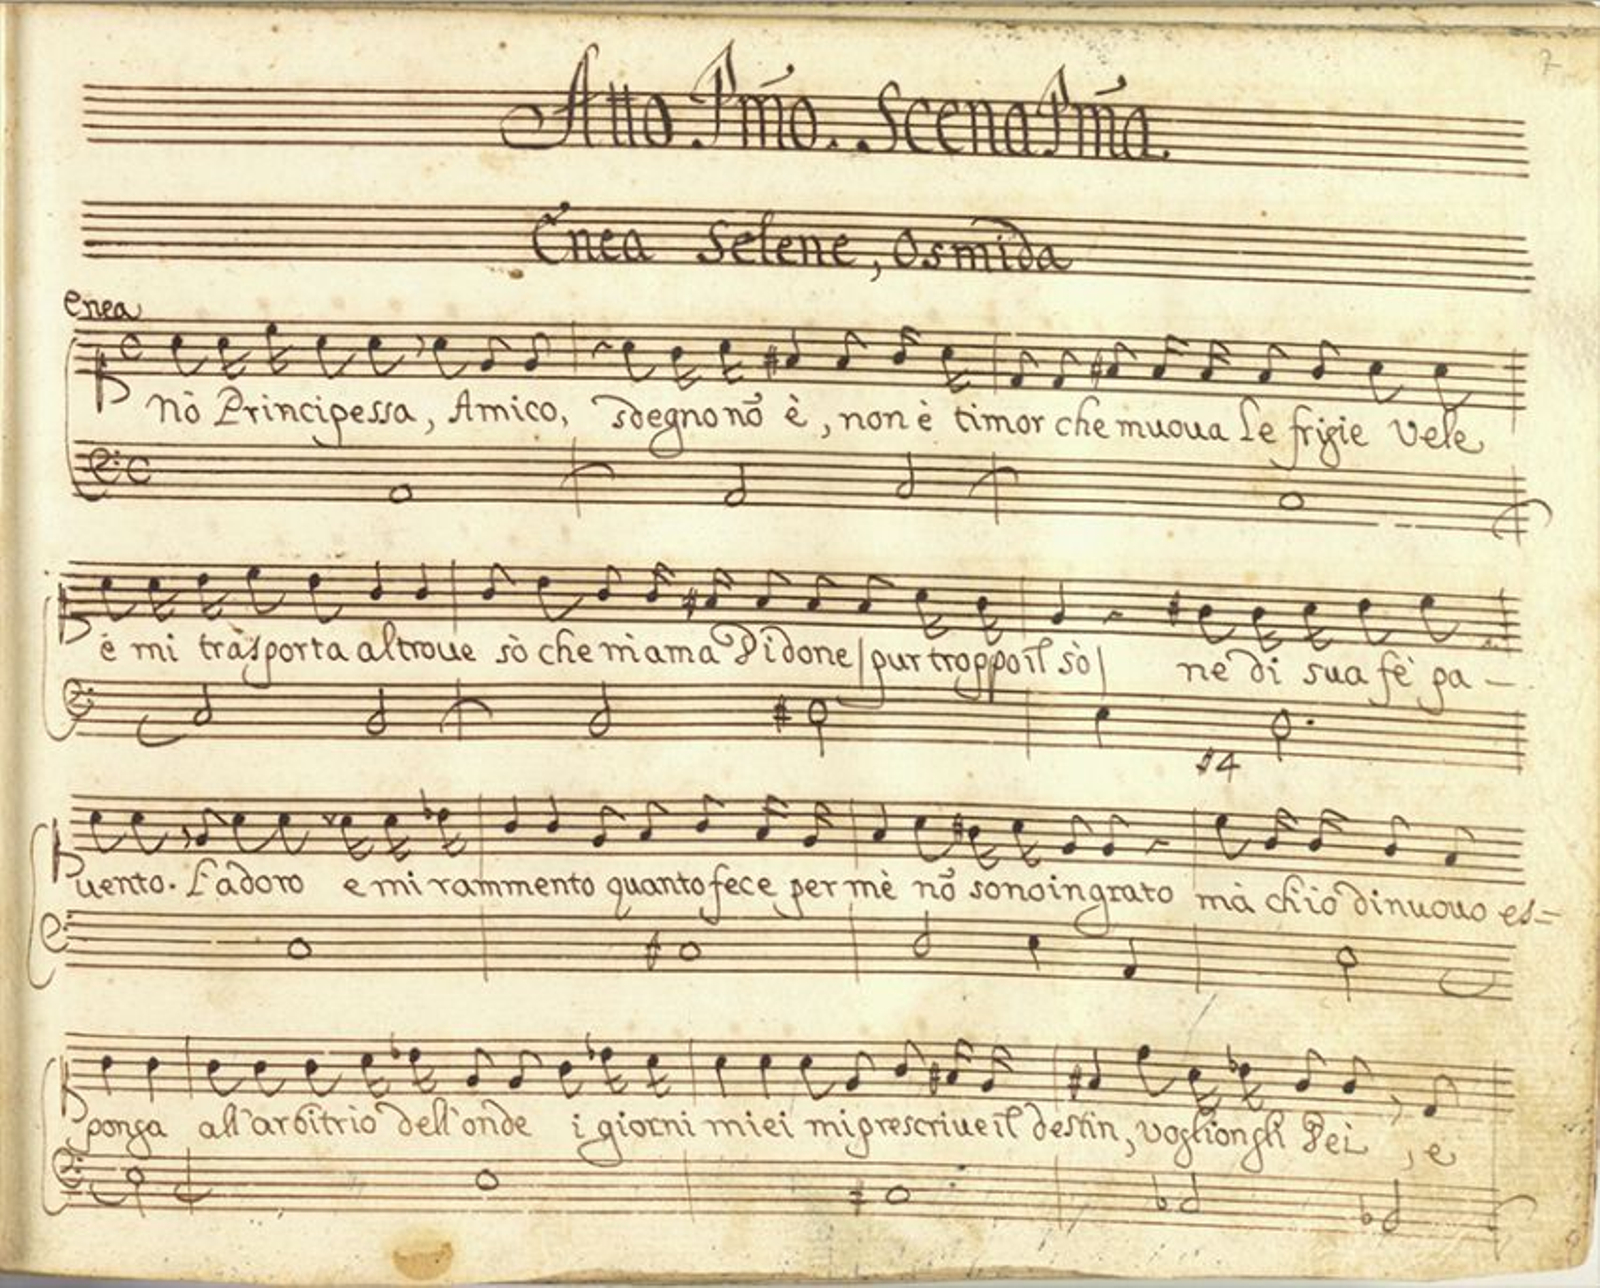 7
Atto Pmo. Scena Pma.
Enea Selene, Osmida
Enea
Nò Principessa, Amico, sdegno nō è, non è timor che muoua Le frigie Vele
è mi trasporta altroue sò che m'ama Didone | pur troppo il sò | ne di sua fè pa -
♯4
uento. L'adoro e mi rammento quanto fece per mè nō sono ingrato mà ch'io di nuouo es=
ponga all'arbitrio dell'onde i giorni miei mi prescriue il destin, voglion gli Dei, e